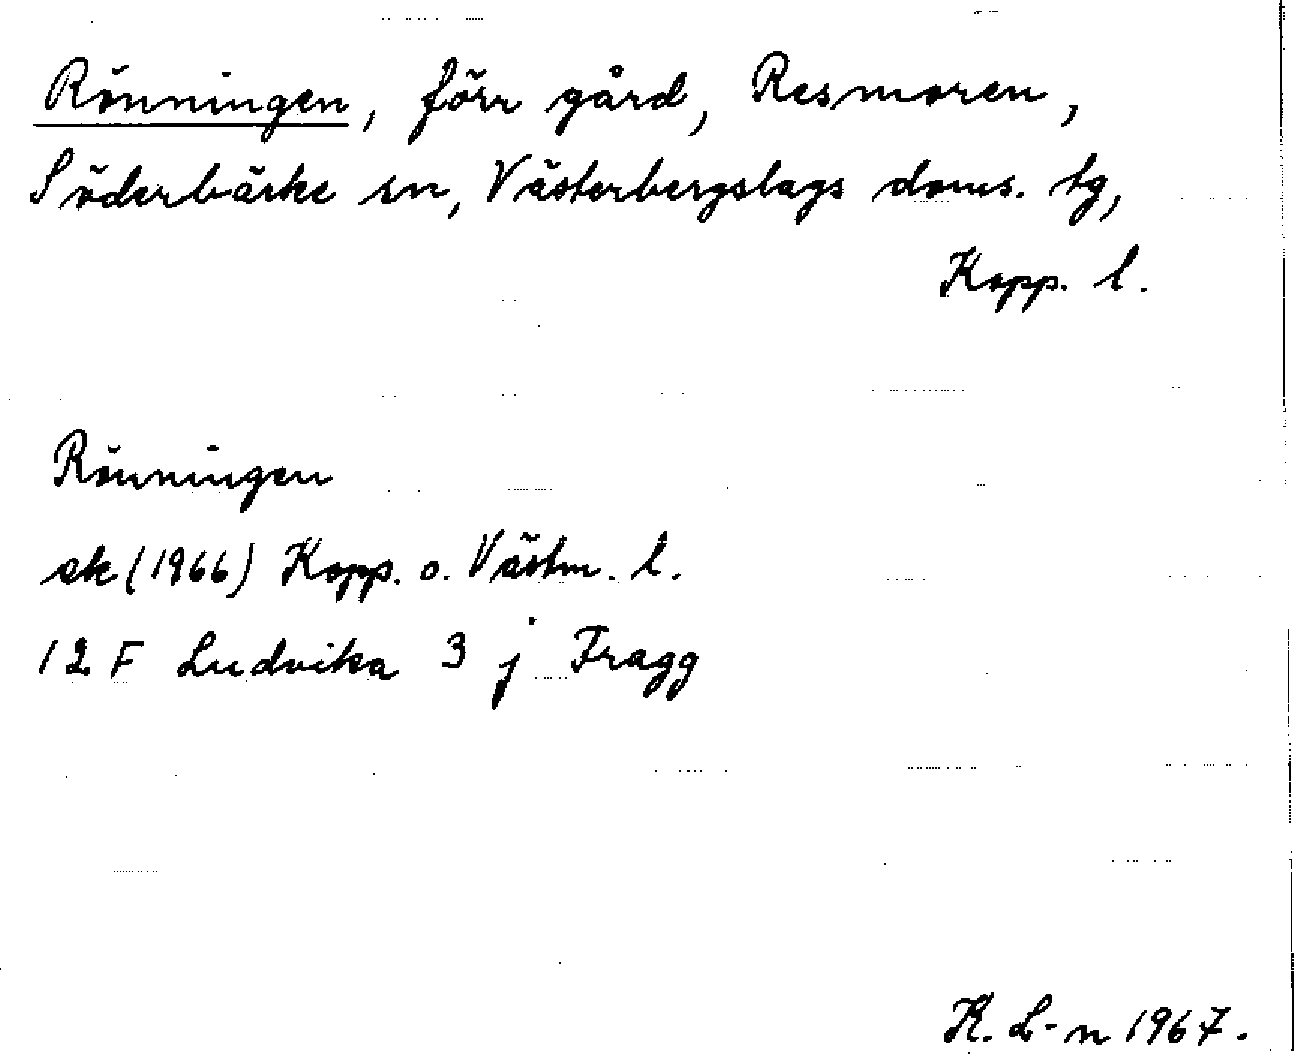 Rönningen, förr gård, Resmoren,
Söderbärke sn, Västerbergslags doms. tg,
Kopp. l.
Rönningen
ek (1966) Kopp. o. Västm. l.
12 F Ludvika 3 j Fragg
K. L-n 1967.